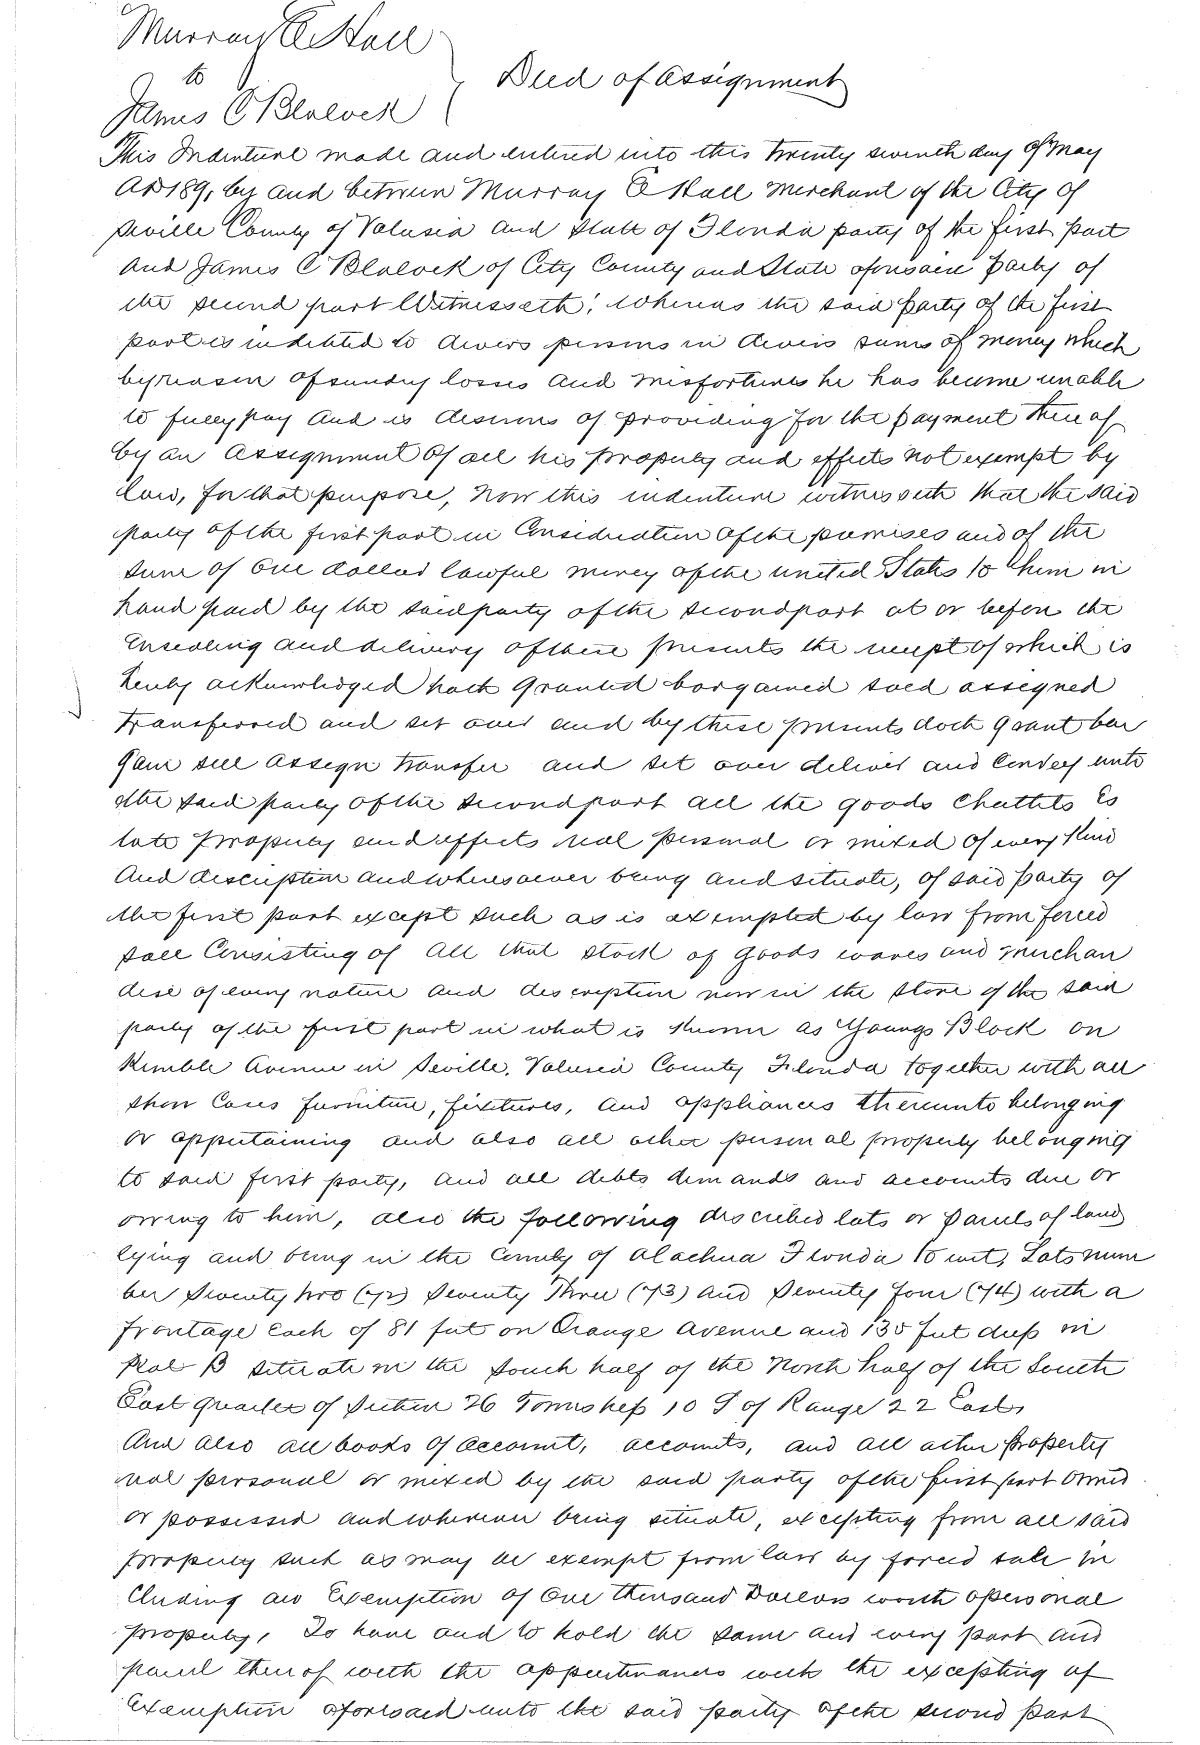 Murray E Hall
to
James C Blalock
Deed of Assignment
This Indenture made and entered into this twenty seventh day of May
AD 189, by and between Murray E Hall Merchant of the City of
Seville County of Volusia and State of Florida party of the first part
And James C Blalock of City County and State aforesaid Party of
the second part Witnesseth; Whereas the said Party of the first
part is indebted to divers persons in divers sums of money which
by reason of sundry losses and misfortunes he has become unable
to fully pay And is desirous of providing for the payment thereof
by an Assignment of all his property and effects not exempt by
law, for that purpose, Now this indenture witnesseth that the said
party of the first part in Consideration of the premises and of the
sum of One dollar lawful money of the united States to him in
hand paid by the said party of the second part at or before the
Ensealing and delivery of these presents the receipt of which is
hereby acknowledged hath Granted bargained sold assigned
transferred and set over and by these presents doth grant bar
gain sell assign transfer and set over deliver and Convey unto
the said party of the second part all the goods Chattels Es
tate property and effects real personal or mixed of every Kind
And description and wheresoever being and situate, of said party of
the first part except such as is exempted by law from forced
sale Consisting of All that stock of Goods wares and merchan
dise of every nature and description now in the store of the said
party of the first part in what is Known as Youngs Block on
Kimble Avenue in Seville, Volusia County Florida together with all
show Cases furniture, fixtures, and appliances thereunto belonging
or appertaining and also all other personal property belonging
to said first party, and all debts demands and accounts due or
owing to him, also the following described lots or parcels of land
lying and being in the County of Alachua Florida to wit, Lots num
ber Seventy two (72) Seventy Three (73) and Seventy four (74) with a
frontage each of 81 feet on Orange Avenue and 130 feet deep in
Plat B situate in the South half of the North half of the South
East Quarter of Section 26 Township 10 S of Range 22 East,
And also all books of account, accounts, and all other property
real personal or mixed by the said party of the first part owned
or possessed and wherever being situate, excepting from all said
property such as may be exempt from law by forced sale in
cluding an Exemption of One thousand Dollars worth of personal
property, To have and to hold the same and every part and
parcel thereof with the appurtenances with the excepting of
Exemption aforesaid unto the said party of the second part